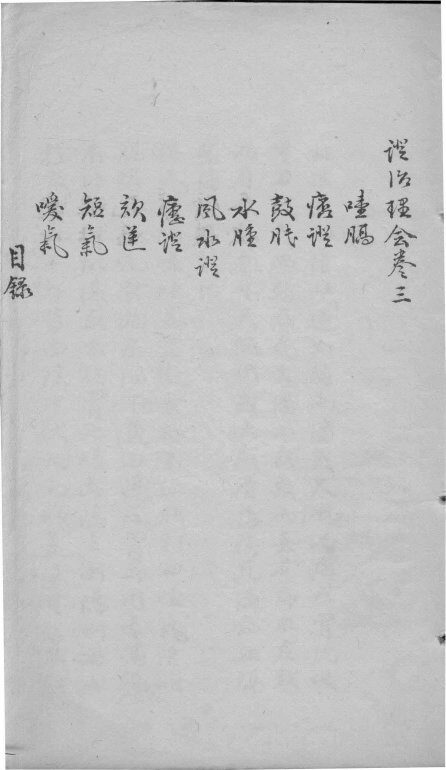 證治理会卷三
噎膈
痰證
鼓脹
水腫
風水證
瘧證
欬逆
短氣
噯氣
目錄